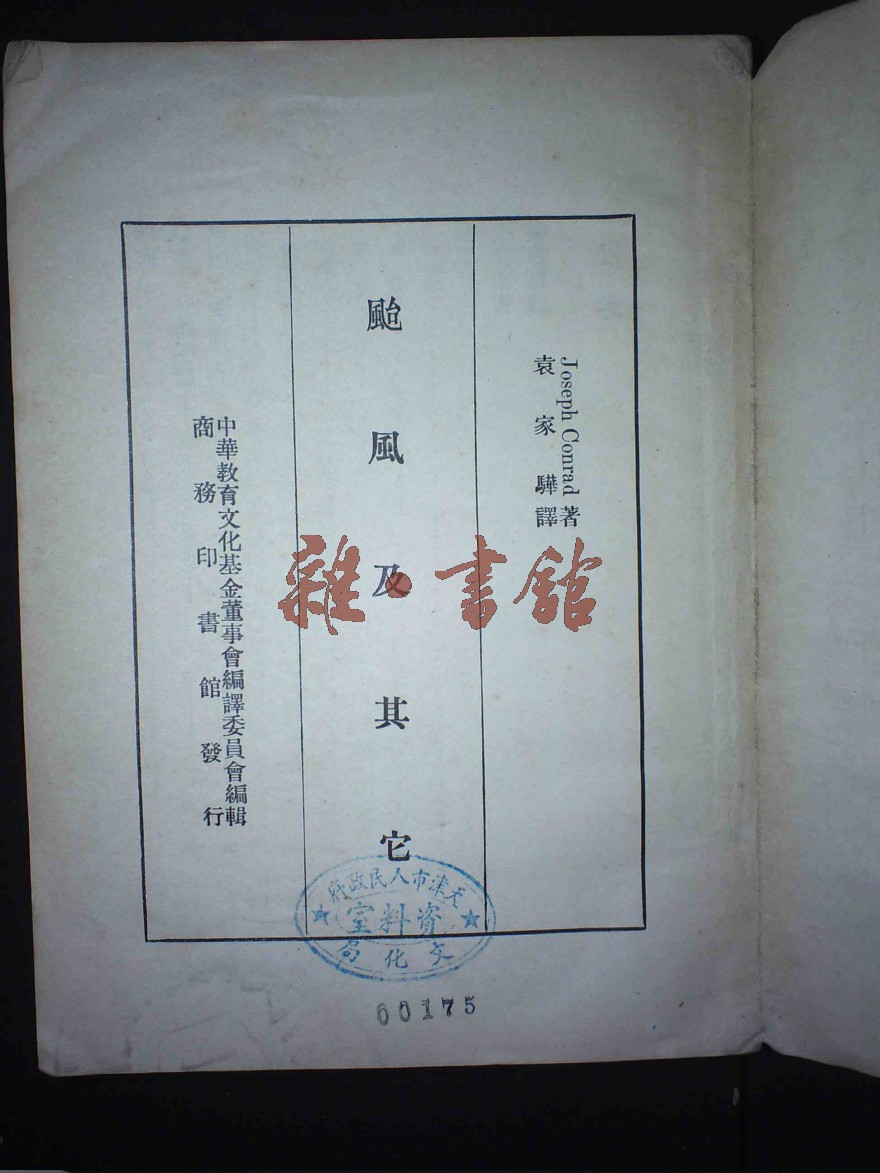 Joseph Conrad 著
袁家驊譯
颱風及其它
中華教育文化基金董事會編譯委員會編輯
商務印書館發行
雜·書館
天津市人民政府
資料室
文化局
00175